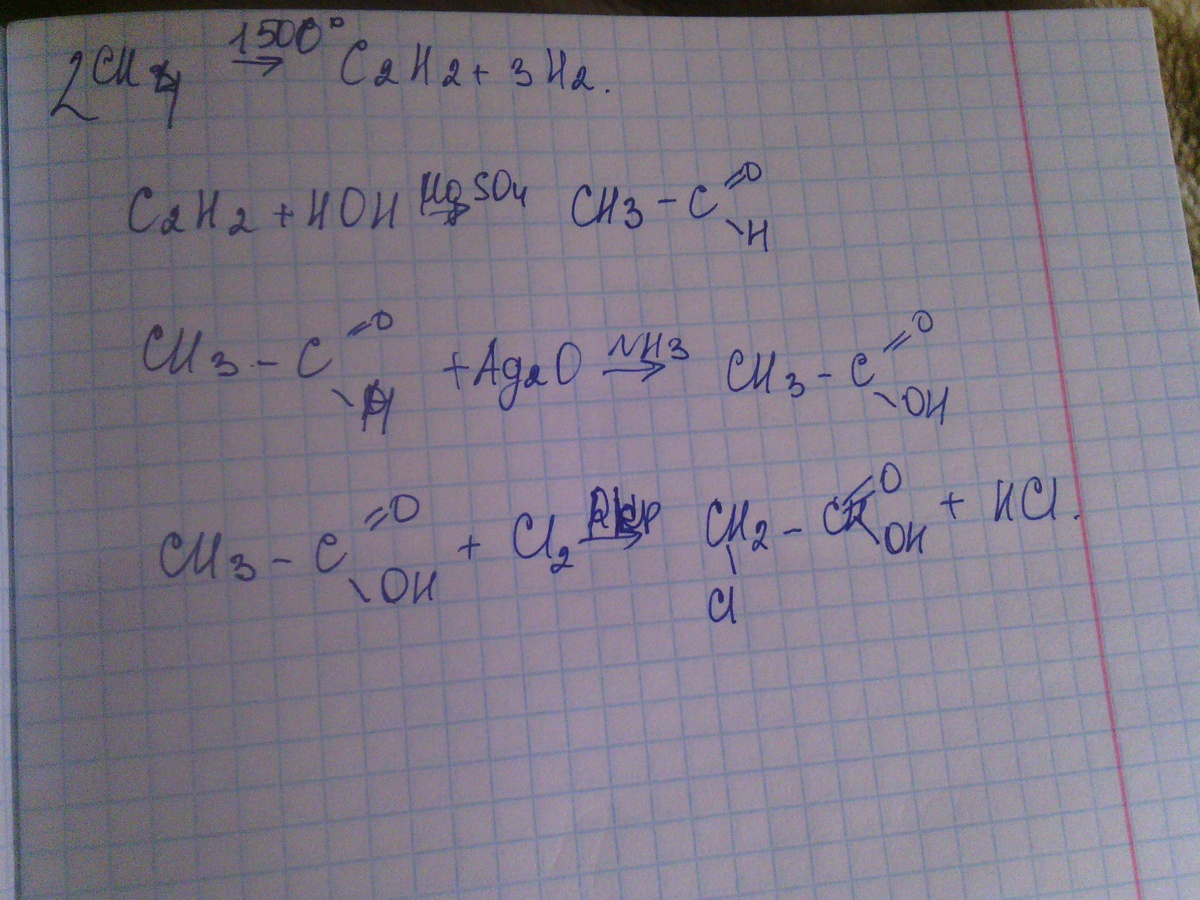 2CH4 1500° → C2H2 + 3H2.
C2H2 + HOH HgSO4 → CH3 - C =O \H
CH3 - C =O \H + Ag2O NH3 → CH3 - C =O \OH
CH3 - C =O \OH + Cl2 → CH2 - C =O \OH + HCl.
Cl